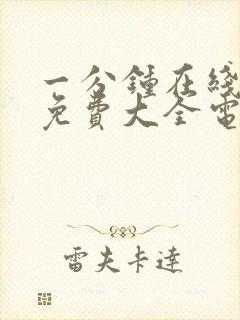 一分鍾在綫
免費大全電
雷夫卡達